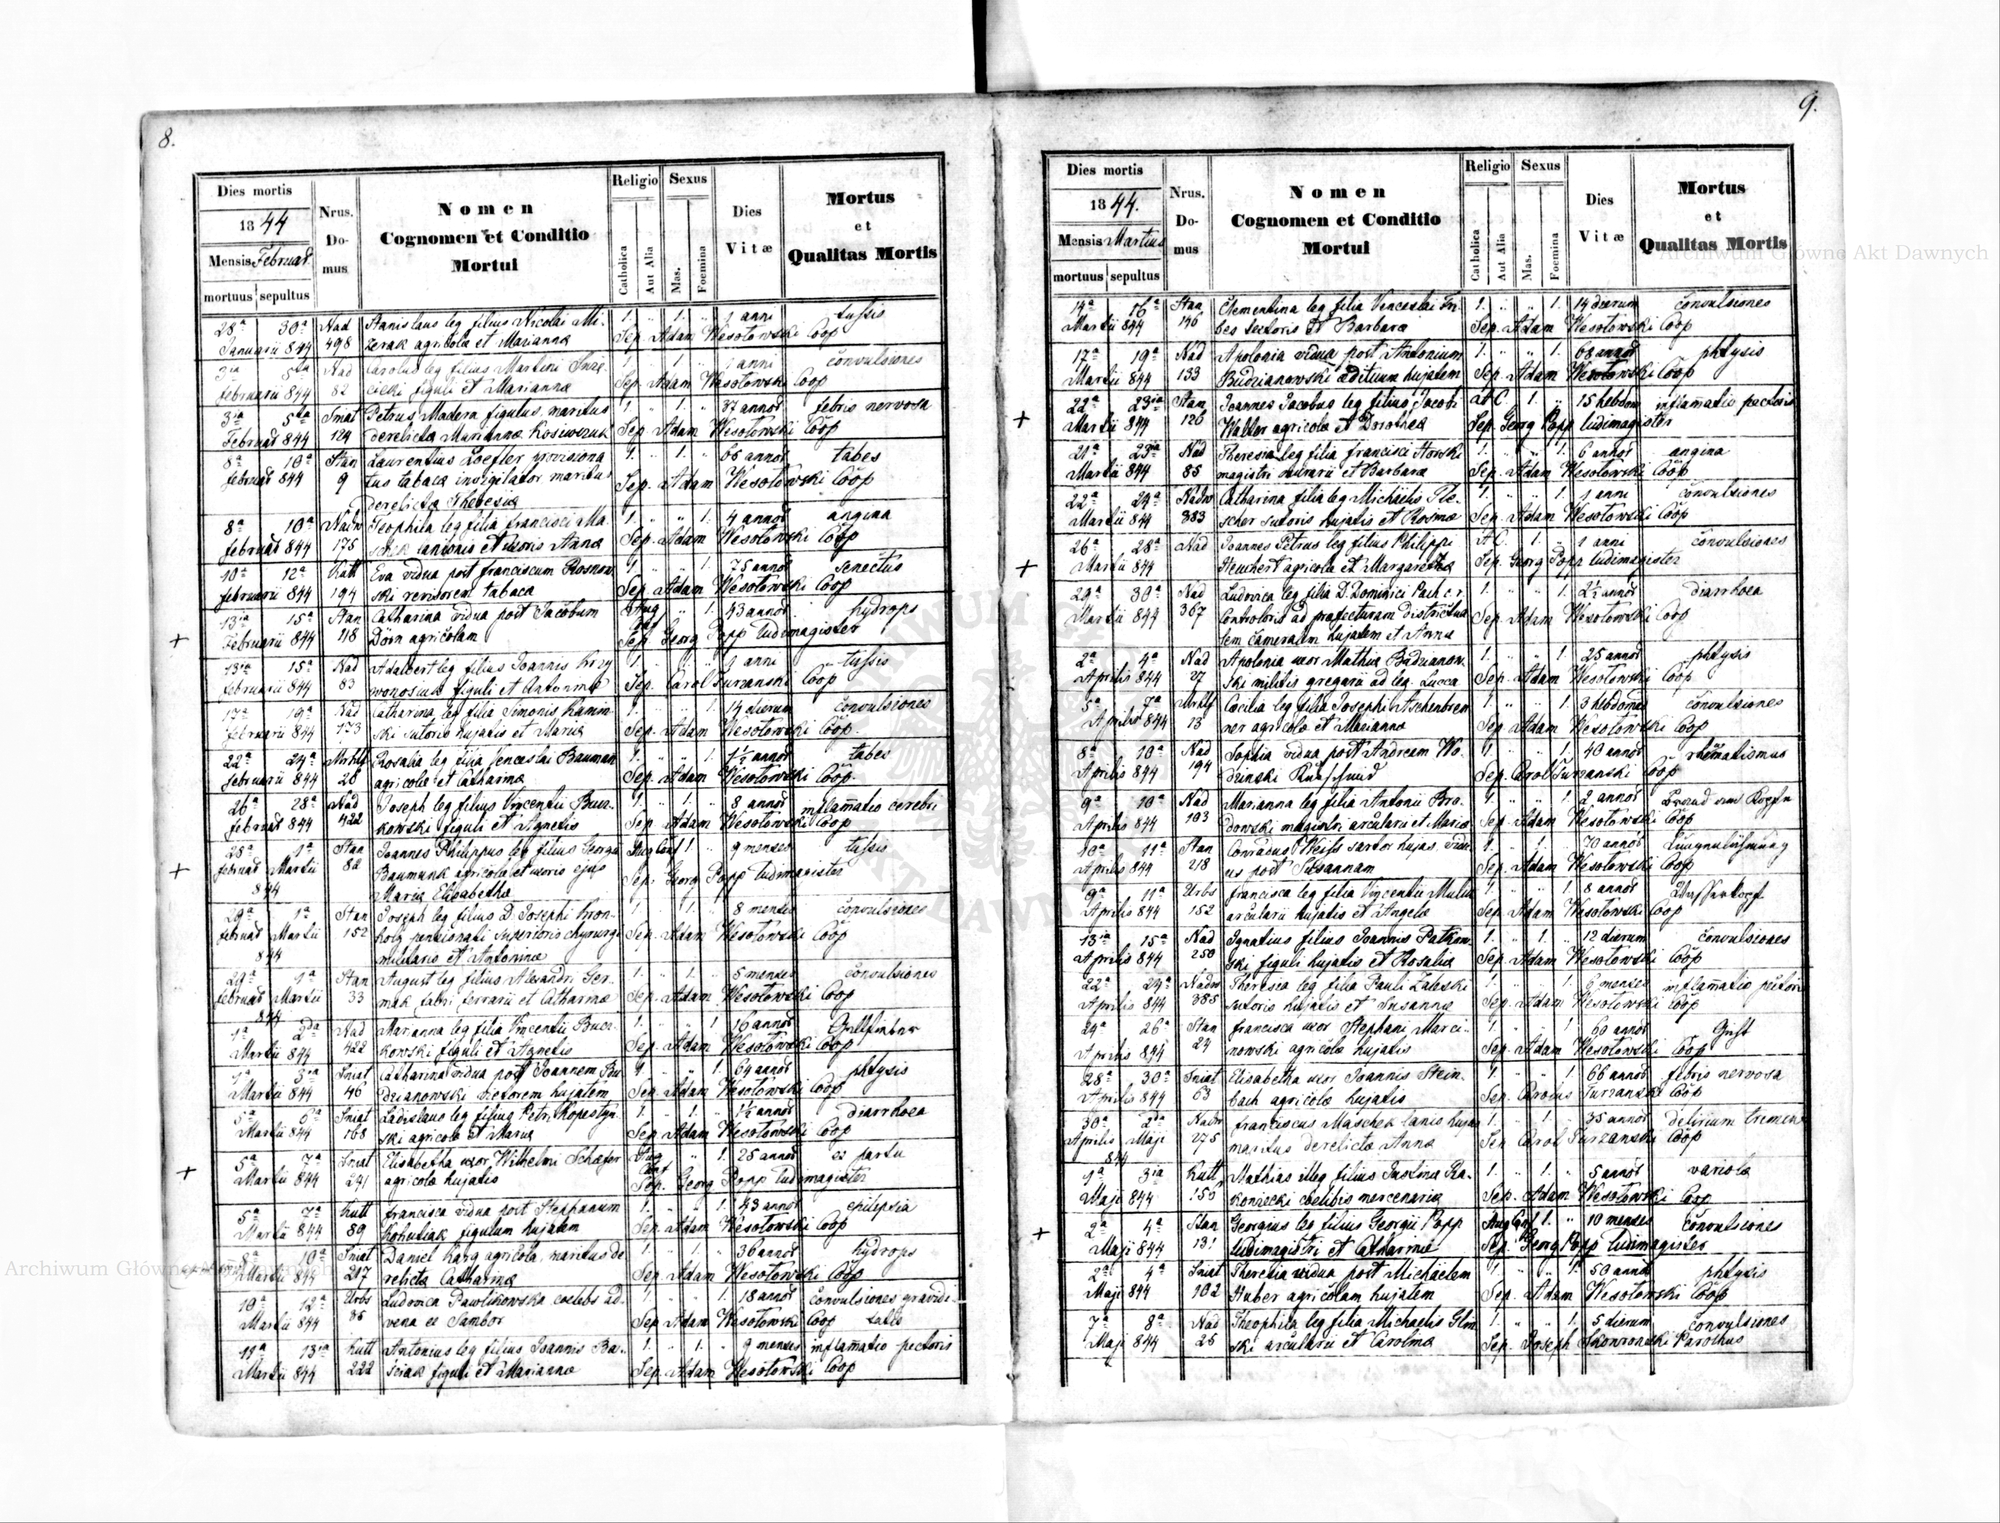 8.
Dies mortis
1844
Mensis Februar.
mortuus sepultus
Nrus. Domus
Nomen
Cognomen et Conditio
Mortui
Religio
Catholica
Aut Alia
Sexus
Mas.
Foemina
Dies
Vitæ
Mortus
et
Qualitas Mortis
28ª 30ª Nad Stanislaus leg filius Nicolai Mi- 1. 1. 1 anni tussis
Januarii 844 498 zerak agricola et Marianna Sep. Adam Wesołowski Coop
3ia 5ta Nad Carolus leg filius Martini 1. 1 anni convulsiones
februarii 844 82 figuli et Marianna Sep. Adam Wesołowski Coop
3ia 5ta Sniat Petrus Madera figulus maritus 1. 1. 37 annor febris nervosa
Februar 844 124 derelicta Marianna Sep. Adam Wesołowski Coop
8ª 10ª Stan Laurentius Loefler 1. 1. annor tabes
februar 844 9 tus tabaca invigilator maritus Sep. Adam Wesołowski Coop
derelicta Theresia
8ª 10ª Nadw Theophila leg filia francisci Ma- 1. 1. 4 annor angina
februar 844 175 et uxoris Anna Sep. Adam Wesołowski Coop
10ª 12ª Kutt Eva vidua post franciscum Rosnow 1. 1. 75 annor senectus
februarii 844 194 ski revisorem tabaca Sep. Adam Wesołowski Coop
13ia 15ª Stan Catharina vidua post Jacobum Aug 1. 43 annor hydrops
+ Februarii 844 118 Dörn agricolam Sep. Georg Popp ludimagister
13ia 15ª Nad Adalbert leg filius Joannis Krzy 1. 1 anni tussis
februarii 844 83 figuli et Antonina Sep. Carol Turzanski Coop
17ª 19ª Nad Catharina leg filia Simonis Kamin- 1. 14 dierum convulsiones
februarii 844 173 ski sutoris hujatis et Maria Sep. Adam Wesołowski Coop.
22ª 24ª Rosalia leg filia Bauman 1. 1. 1½ annor tabes
februarii 844 28 agricola et Catharina Sep. Adam Wesołowski Coop.
26ª 28ª Nad Joseph leg filius Vincentii Bucz- 1. 1. 8 annor inflamatio cerebri
februar 844 422 kowski figuli et Agnetis Sep. Adam Wesołowski Coop
28ª 1ª Stan Joannes Philippus leg filius Georgii Aug Conf 1. 9 menses tussis
+ februar Martii 82 Baumunk agricola et uxoris ejus Sep. Georg Popp ludimagister
844 Maria Elisabetha
29ª 1ª Stan Joseph leg filius D. Josephi Kron- 1. 1. 8 menses convulsiones
februar Martii 152 holz pensionati superioris chyrurgi Sep. Adam Wesołowski Coop
844 militaris et Antonina
29ª 1ª Stan August leg filius Alexandri Ger- 1. 1. 5 menses convulsiones
februar Martii 33 mak fabri ferrarii et Catharina Sep. Adam Wesołowski Coop
844
1ª 2da Nad Marianna leg filia Vincentii Bucz- 1. 1 16 annor
Martii 844 422 kowski figuli et Agnetis Sep. Adam Wesołowski Coop
1ª 3ia Sniat Catharina vidua post Joannem Bu 1. 1. 64 annor phtysis
Martii 844 46 dzianowski hujatem Sep. Adam Wesołowski Coop
5ª 6ª Sniat Ladislaus leg filius Petri Kopestyn- 1. 1. 1½ annor diarrhoea
Martii 844 168 ski agricola et Maria Sep. Adam Wesołowski Coop
5ª 7ª Sniat Elisabetha uxor Wilhelmi Schæfer Aug Conf 1. 25 annor ex partu
+ Martii 844 291 agricola hujatis Sep. Georg Popp ludimagister
5ª 7ª Kutt francisca vidua post Stephanum 1. 1. 43 annor epilepsia
Martii 844 89 Kohutiak figulum hujatem Sep. Adam Wesołowski Coop
8ª 10ª Sniat Daniel Karg agricola maritus de 1. 1. 36 annor hydrops
Martii 844 217 relicta Catharina Sep. Adam Wesołowski Coop
10ª 12ª Urbs Ludovica Pawlikowska coelebs ad- 1. 1. 18 annor convulsiones gravidi-
Martii 844 35 vena ex Sambor Sep. Adam Wesołowski Coop tatis
11ª 13ia Kutt Antonius leg filius Joannis Ba- 1. 1. 9 menses inflamatio pectoris
Martii 844 222 siak figuli et Marianna Sep. Adam Wesołowski Coop
9.
Dies mortis
1844.
Mensis Martius
mortuus sepultus
Nrus. Domus
Nomen
Cognomen et Conditio
Mortui
Religio
Catholica
Aut Alia
Sexus
Mas.
Foemina
Dies
Vitæ
Mortus
et
Qualitas Mortis
14ª 16ª Stan Clementina leg filia Venceslai 1. 1. 14 dierum convulsiones
Martii 844 146 sectoris et Barbara Sep. Adam Wesołowski Coop
17ª 19ª Nad Apolonia vidua post Antonium 1. 1. 68 annor phtysis
Martii 844 133 Budzianowski ædituum hujatem Sep. Adam Wesołowski Coop
22ª 23ia Stan Joannes Jacobus leg filius Jacobi A.C. 1. 15 hebdom inflamatio pectoris
+ Martii 844 126 Walter agricola et Dorothea Sep. Georg Popp ludimagister
21ª 23ia Nad Theresia leg filia francisci 1. 1. 6 annor angina
Martii 844 85 magistri murarii et Barbara Sep. Adam Wesołowski Coop
22ª 24ª Nadw Catharina filia leg Michaelis Fle- 1. 1. 1 anni convulsiones
Martii 844 383 scher sutoris hujatis et Rosina Sep. Adam Wesołowski Coop
26ª 28ª Nad Joannes Petrus leg filius Philippi A.C. 1. 1 anni convulsiones
+ Martii 844 Heuchert agricola et Margaretha Sep. Georg Popp ludimagister
29ª 30ª Nad Ludovica leg filia D. Dominici Pach c. r. 1. 1. 2½ annor diarrhoea
Martii 844 367 Controloris ad præfecturam districtua Sep. Adam Wesołowski Coop
lem cameralem hujatem et Anna
2ª 4ª Nad Apolonia uxor Mathia Budzianow- 1. 1. 25 annor phtysis
Aprilis 844 27 ski militis gregarii ad leg. Lucca Sep. Adam Wesołowski Coop
5ª 7ª Cacilia leg filia Josephi Aschenbren 1. 1. 3 hebdomad convulsiones
Aprilis 844 13 ner agricola et Marianna Sep. Adam Wesołowski Coop
8ª 10ª Nad Sophia vidua post Andream Wo- 1. 1. 40 annor rheumatismus
Aprilis 844 194 Sep. Carol Turzanski Coop
9ª 10ª Nad Marianna leg filia Antonii Bro- 1. 1. 2 annor Brand am Kopfe
Aprilis 844 103 dowski magistri arcularii et Maria Sep. Adam Wesołowski Coop
10ª 11ª Stan Conradus Weiss sartor hujas vidu- 1. 1. 70 annor Lungenlähmung
Aprilis 844 218 us post Susannam Sep. Adam Wesołowski Coop
9ª 11ª Urbs francisca leg filia Vincentii 1. 1. 8 annor Wasserkopf
Aprilis 844 152 arcularii hujatis et Angela Sep. Adam Wesołowski Coop
13ia 15ª Nad Ignatius filius Joannis Patkow- 1. 1. 12 dierum convulsiones
Aprilis 844 250 ski figuli hujatis et Rosalia Sep. Adam Wesołowski Coop
22ª 24ª Nadw Theresia leg filia Pauli Zaleski 1. 1. 6 menses inflamatio pectoris
Aprilis 844 385 sutoris hujatis et Susanna Sep. Adam Wesołowski Coop
24ª 26ª Stan francisca uxor Stephani Marci- 1. 1. 60 annor Gicht
Aprilis 844 24 nowski agricola hujatis Sep. Adam Wesołowski Coop
28ª 30ª Sniat Elisabetha uxor Joannis Stein- 1. 1. 66 annor febris nervosa
Aprilis 844 63 bach agricola hujatis Sep. Carolus Turzanski Coop
30ª 2da Nadw franciscus Maschek lanio hujas 1. 1. 35 annor delirium tremen
Aprilis Maji 275 maritus derelicta Anna Sep. Carol Turzanski Coop
844
1ª 3ia Kutt Mathias illeg filius Justina Ra- 1. 1. 5 annor variola
Maji 844 150 koniecki coelibis mercenaria Sep. Adam Wesołowski Coop
2ª 4ª Stan Georgius leg filius Georgii Popp Aug Conf 1. 10 menses convulsiones
+ Maji 844 131 ludimagistri et Catharina Sep. Georg Popp ludimagister
2ª 4ª Sniat Theresia vidua post Michaelem 1. 1. 50 annor phtysis
Maji 844 102 Huber agricolam hujatem Sep. Adam Wesołowski Coop
7ª 8ª Nad Theophila leg filia Michaelis Glin 1. 1. 5 dierum convulsiones
Maji 844 25 ski arcularii et Carolina Sep. Joseph Skowronski Parochus
Archiwum Główne Akt Dawnych
Archiwum Główne Akt Dawnych